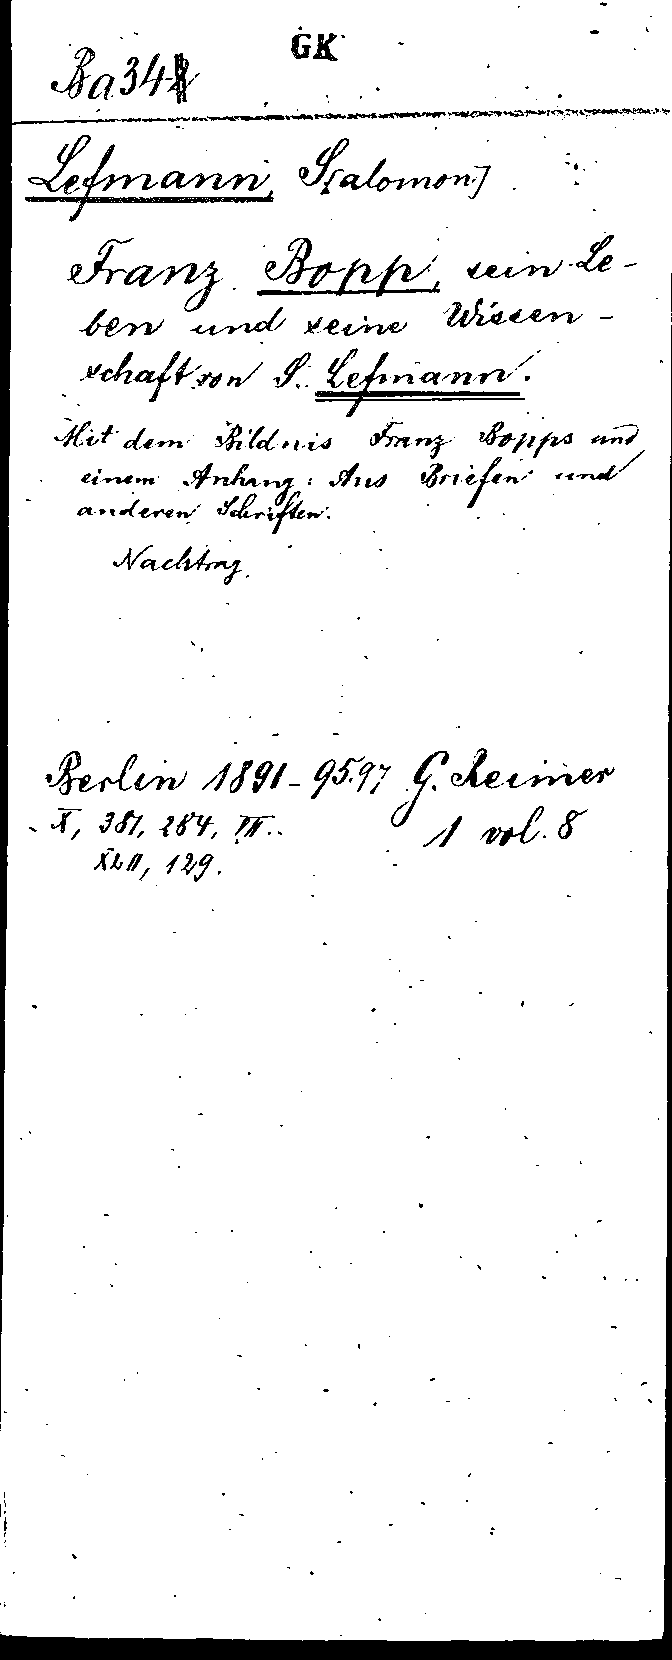 GK
Ba 348
Lefmann, S[alomon]
Franz Bopp, sein Le-
ben und seine Wissen-
schaft von S. Lefmann.
Mit dem Bildnis Franz Bopps und
einem Anhang: Aus Briefen und
anderen Schriften.
Nachtrag.
Berlin 1891-95.97 G. Reimer
X, 381, 284, VII..
1 vol. 8
XLII, 129.